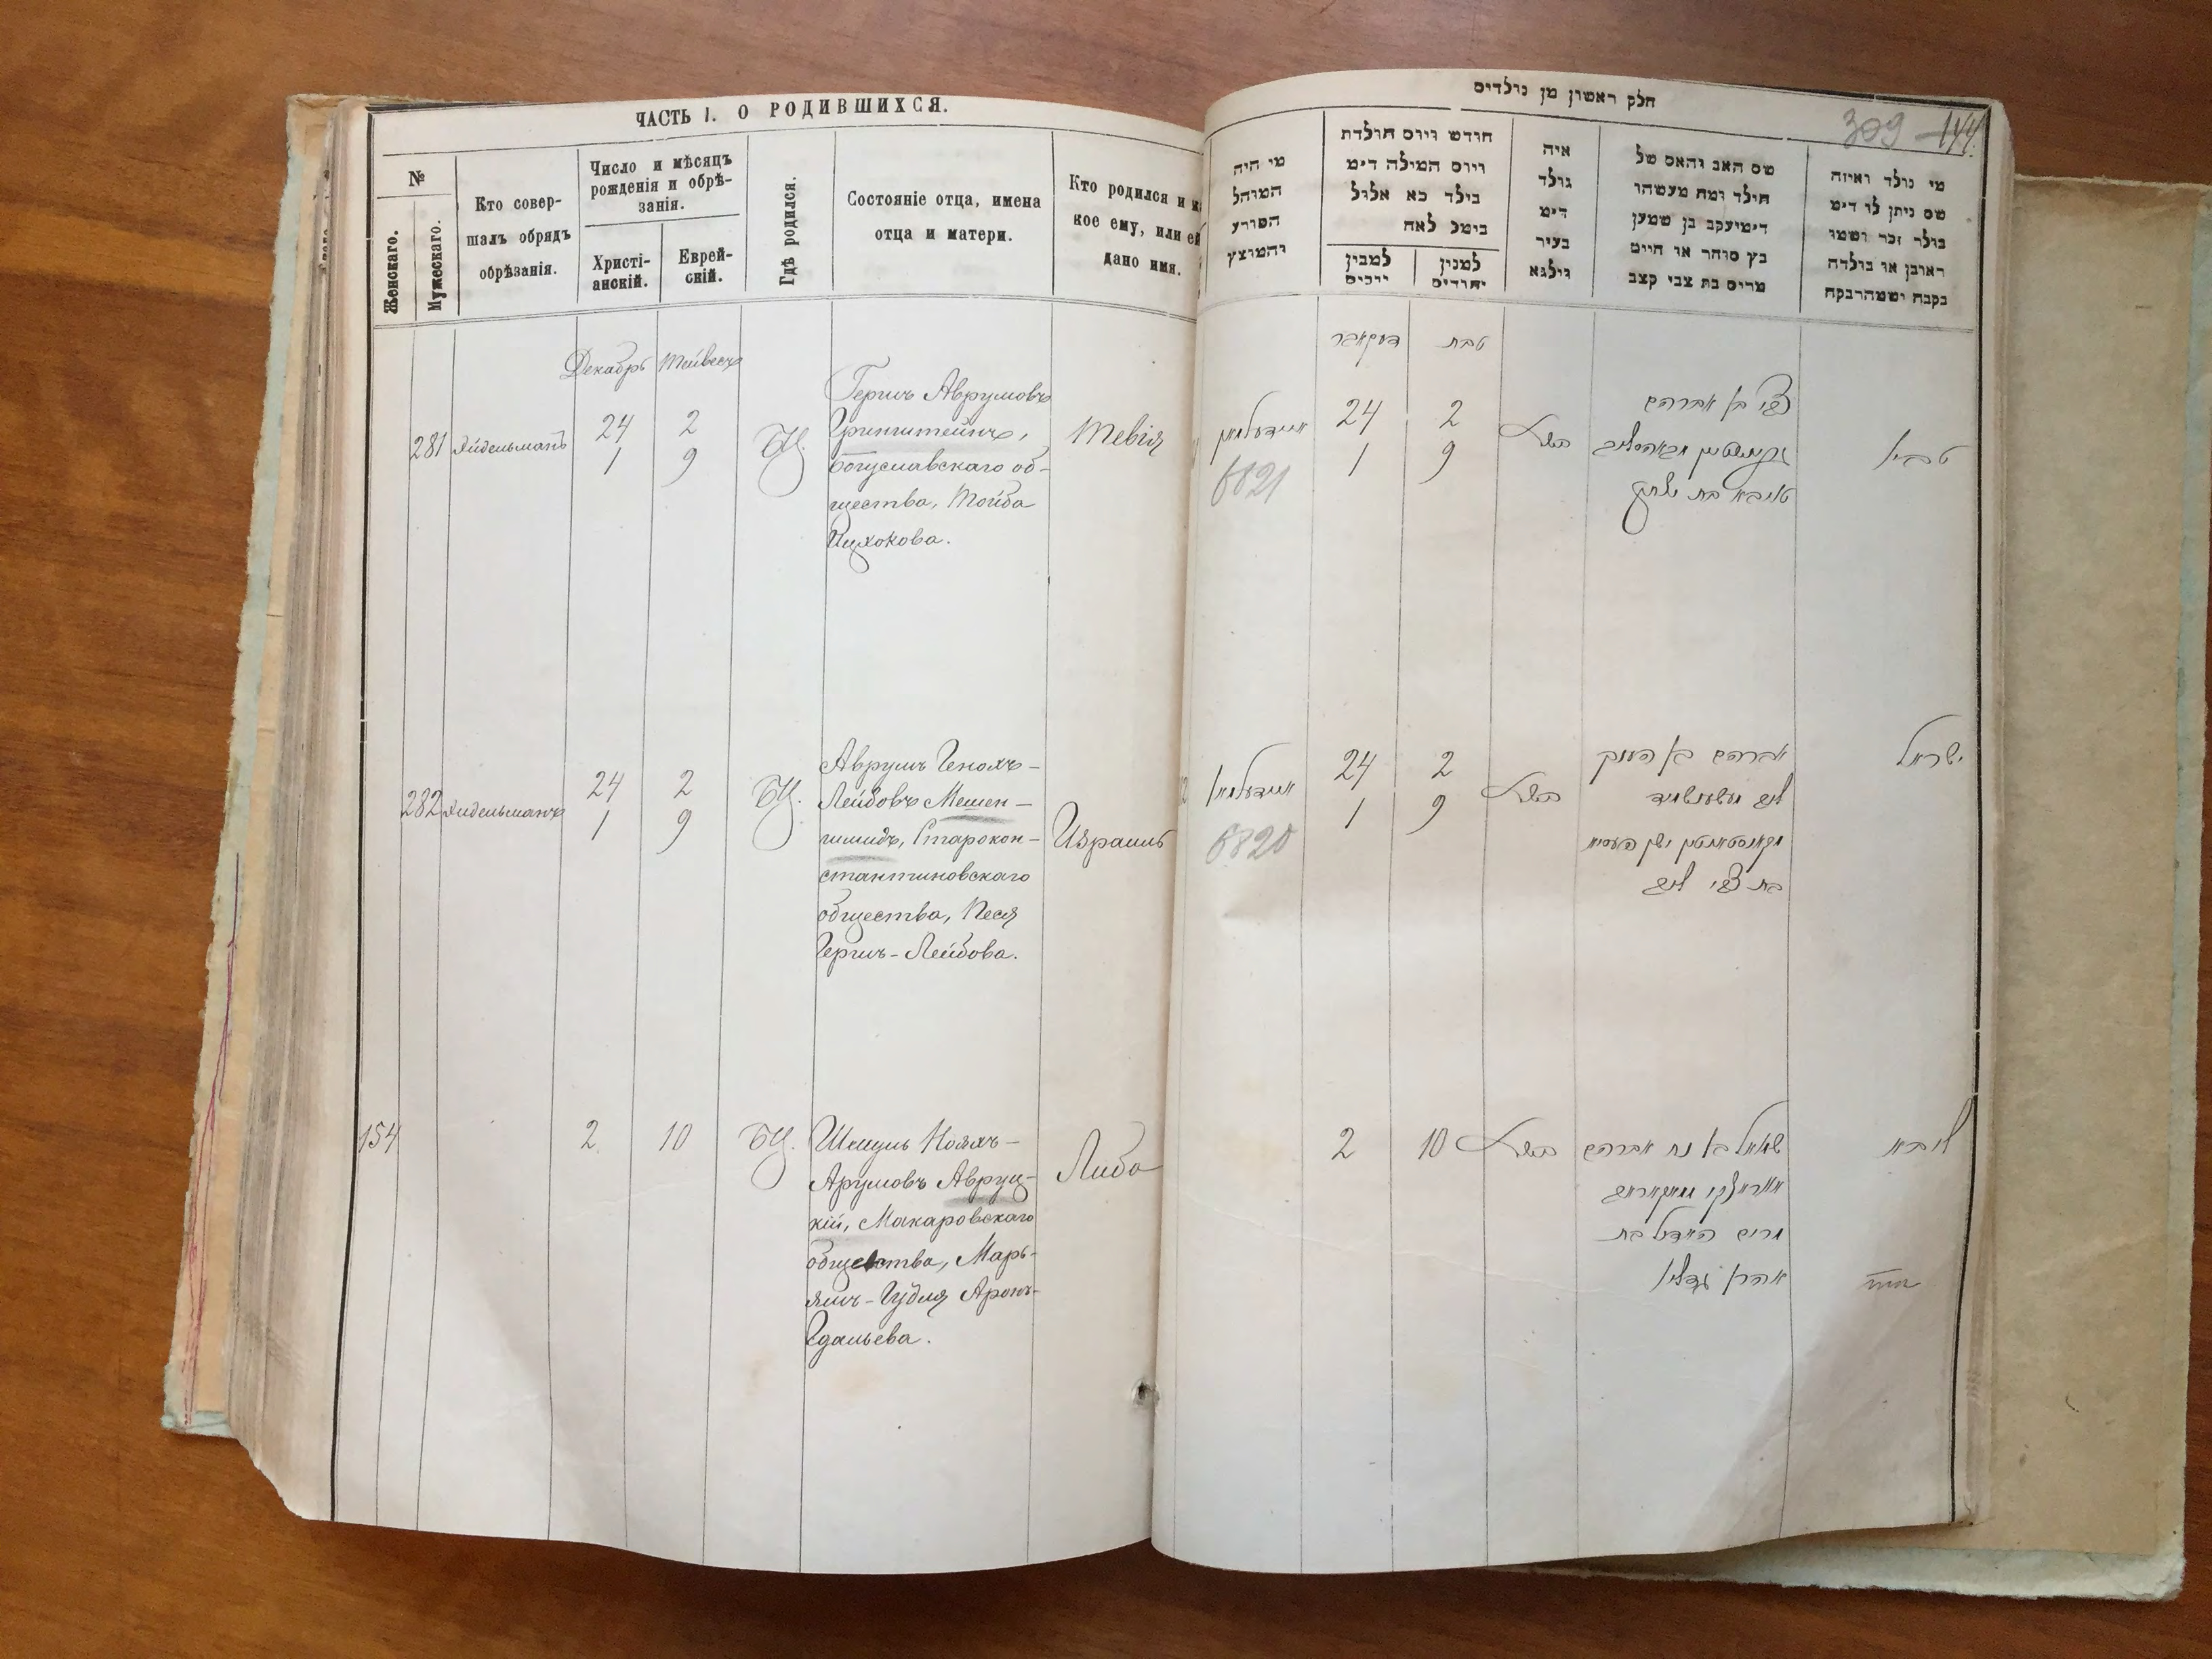 ЧАСТЬ I. О РОДИВШИХСЯ.
№
Женскаго.
Мужескаго.
Кто совер-
шалъ обрядъ
обрѣзанія.
Число и мѣсяцъ
рожденія и обрѣ-
занія.
Христі-
анскій.
Еврей-
скій.
Гдѣ родился.
Состояніе отца, имена
отца и матери.
Кто родился и ка
кое ему, или ей
дано имя.
Декабрь
281
Айдельманъ
24
2
1
9
БЦ.
Гершъ Аврумовъ
Гринштейнъ,
Богуславскаго об-
щества, Тойба
Ицхокова.
Тевія
282
Айдельманъ
24
2
1
9
БЦ.
Аврумъ Генохъ-
Лейбовъ Мешен-
шмидъ, Старокон-
стантиновскаго
общества, Песя
Гершъ-Лейбова.
Израиль
154
2
10
БЦ.
Шмуль Нояхъ-
Арумовъ Авруц-
кій, Макаровскаго
общества, Марь-
ямъ-Гудля Аронъ-
Гдальева.
Либа
חלק ראשון מן נולדים
309
144
מי היה
המוהל
הפורע
והמוצץ
חודש ויום תולדת
ויום המילה דימ
בילד כא אלול
בימל לאח
למנין
יהודים
איה
גולד
דימ
בעיר
ווילנא
שם האב והאם של
הילד ומה מעשהו
דימיעקב בן שמען
כץ סוחר או חייט
מרים בת צבי קצב
מי נולד ואיזה
שם ניתן לו דימ
בולר זכר ושמו
ראובן או בולדה
דעקאבר
טבת
איידעלמאן
6821
24
2
1
9
צבי בן אברהם
טביא
איידעלמאן
6820
24
2
1
9
אברהם בן העניך
בת צבי ליב
ישראל
2
10
שמואל בן נח אברהם
מרים הודל בת
אהרן גדליה
ליבא